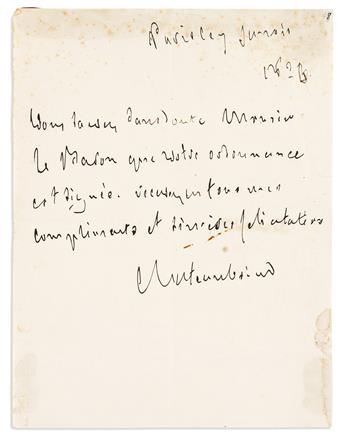 Vous savez sans doute Monsieur
le Baron que votre ordonnance
est signée. recevez tous mes
compliments et sincères félicitations
Chateaubriand
8